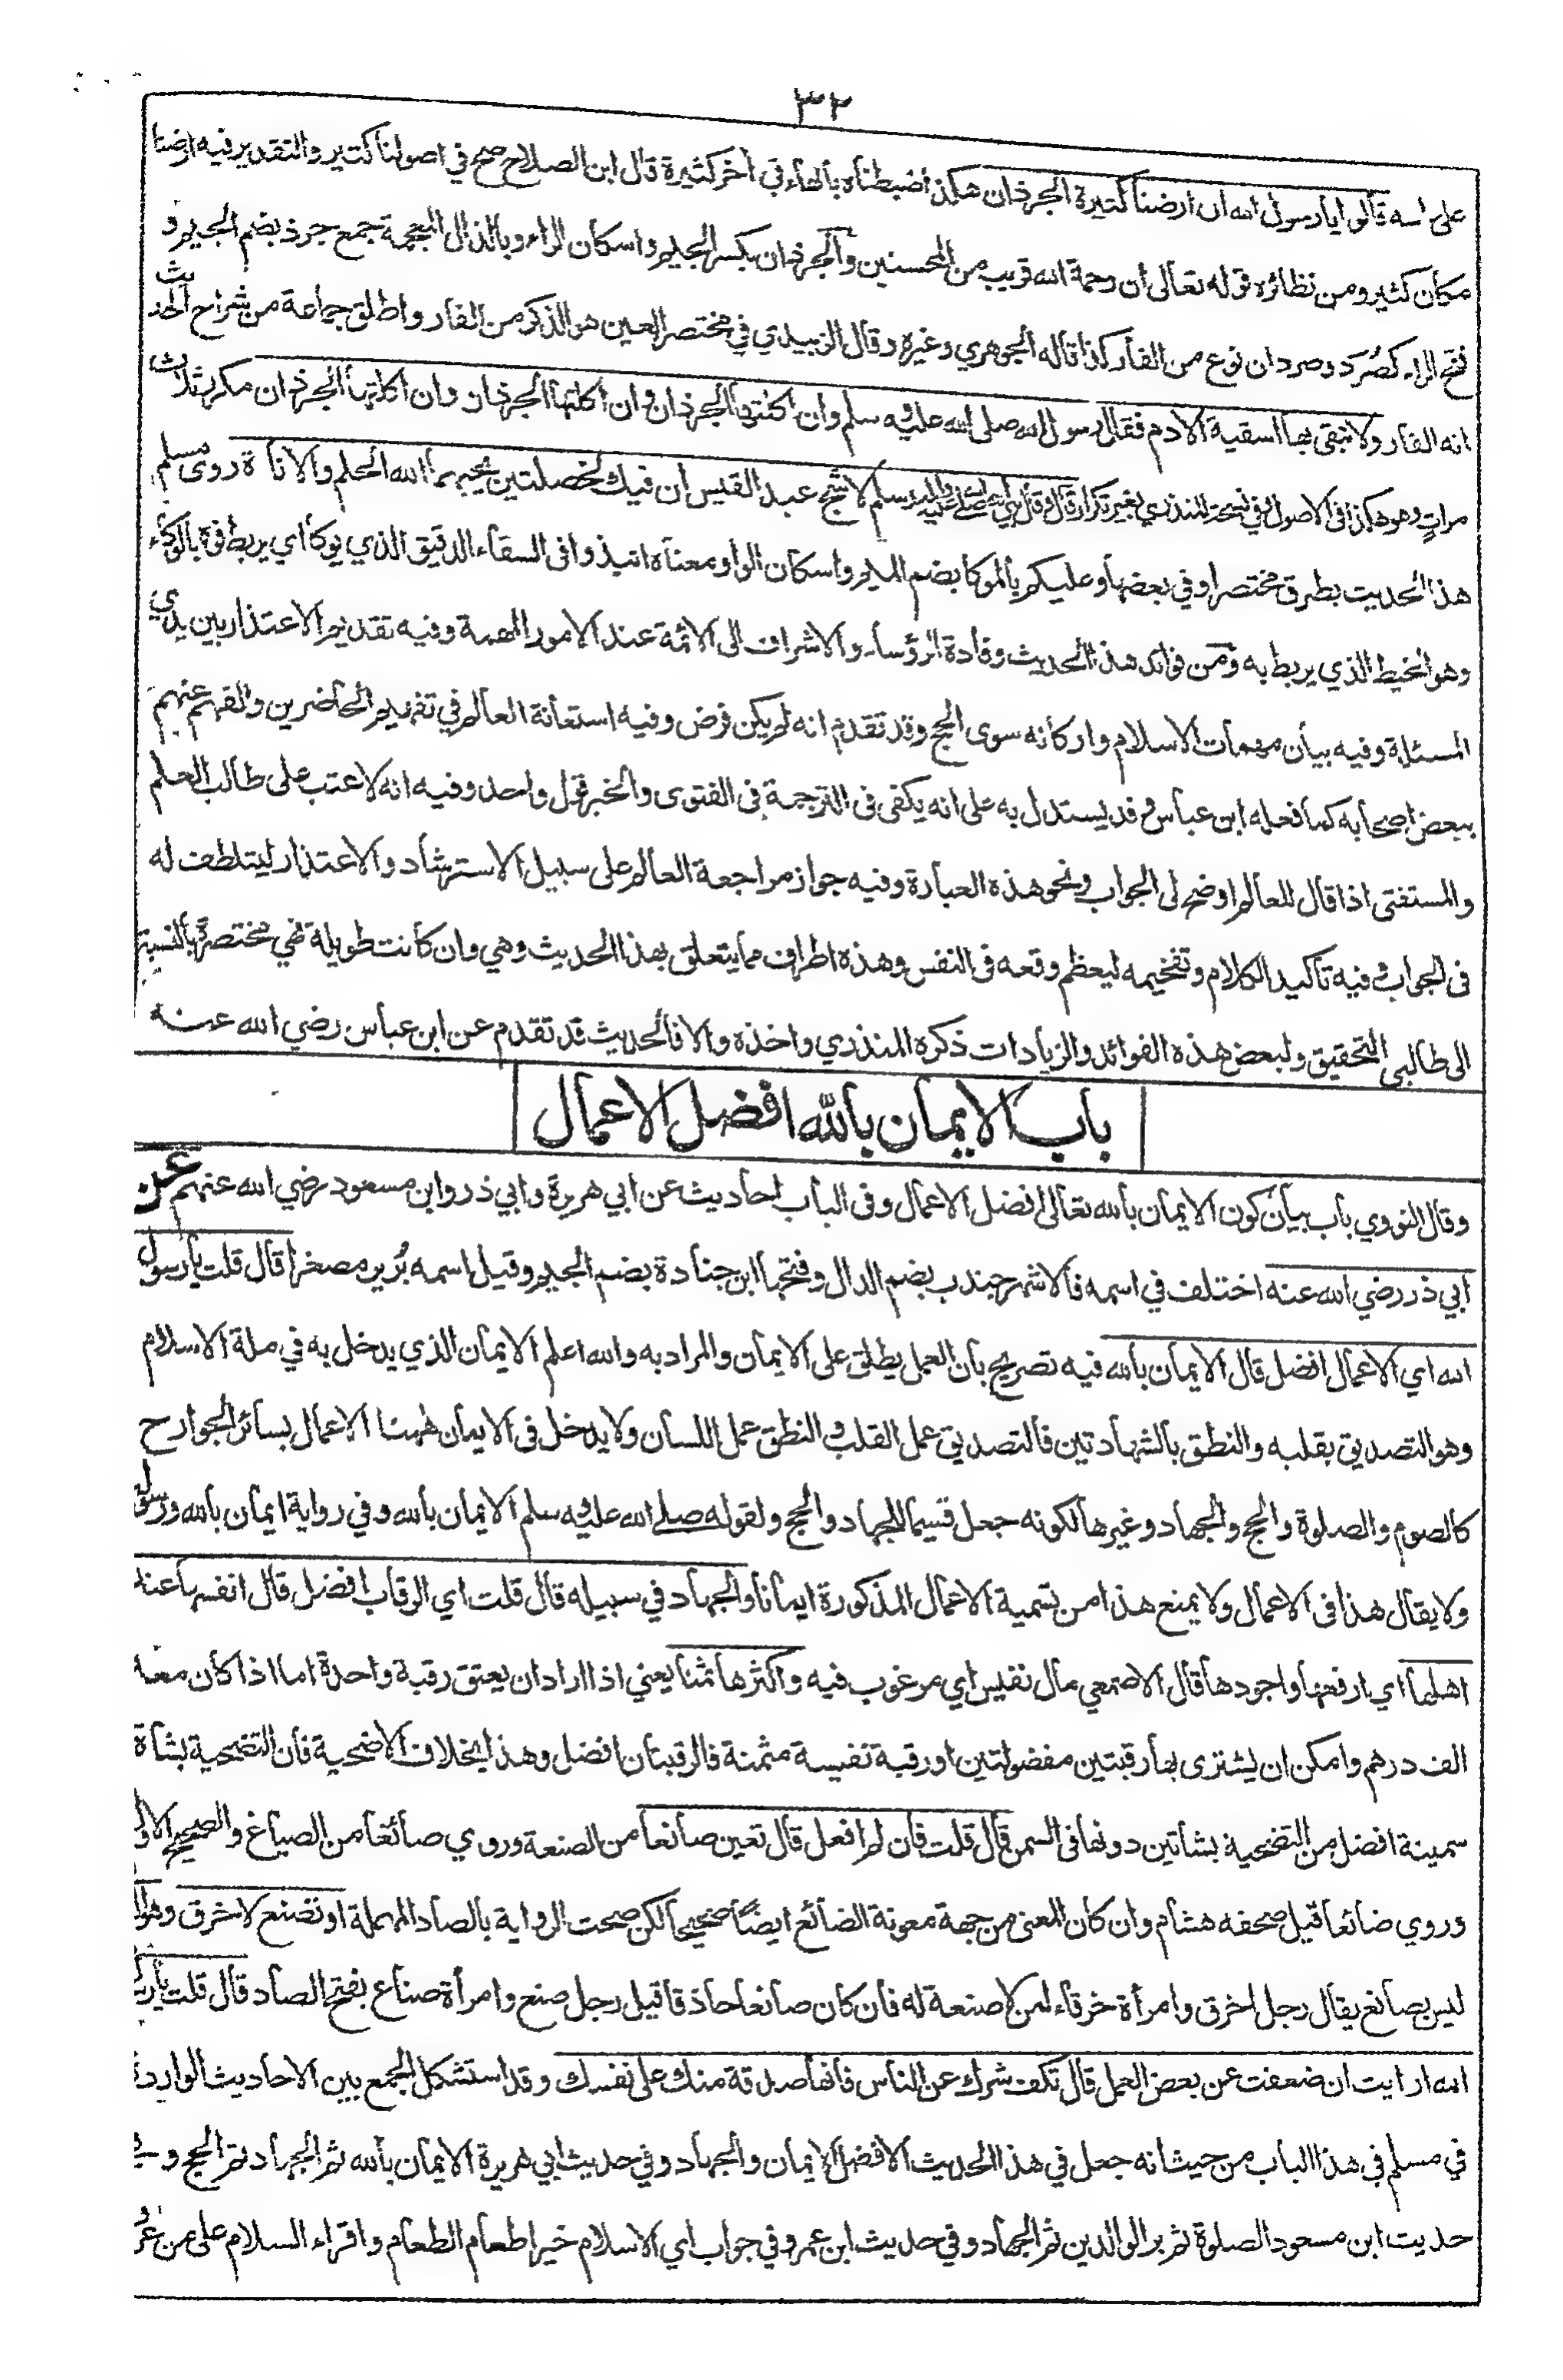 ٣٢
على راسه قالوا يا رسول الله ان ارضنا كثيرة الجرذان هكذا ضبطناه بالهاء في اخر كثيرة قال ابن الصلاح صح في اصولنا كثير والتقدير فيه ارضنا
مكان كثير ومن نظائره قوله تعالى ان رحمة الله قريب من المحسنين والجرذان بكسر الجيم واسكان الراء وبالذال المعجمة جمع جرذ بضم الجيم و
فتح الراء كصُرَد وصردان نوع من الفأر كذا قاله الجوهري وغيره وقال الزبيدي في مختصر العين هو الذكر من الفار واطلق جماعة من شراح الحديث
انه الفار ولا تبقى بها اسقية الادم فقال رسول الله صلى الله عليه وسلم وان اكلتها الجرذان وان اكلتها الجرذان وان اكلتها الجرذان مكرر ثلاث
مرات وهو هكذا في الاصول وفي نسخة المنذري بغير تكرار قال وقال نبي الله صلى الله عليه وسلم لاشج عبد القيس ان فيك لخصلتين يحبهما الله الحلم والاناة روى مسلم
هذا الحديث بطرق مختصرا وفي بعضها وعليكم بالموكا بضم الميم واسكان الواو ومعناه انبذوا في السقاء الدقيق الذي يوكأ اي يربط فوه بالوكاء
وهو الخيط الذي يربط به ومن فوائد هذا الحديث وفادة الرؤساء والاشراف الى الائمة عند الامور المهمة وفيه تقديم الاعتذار بين يدي
المسئلة وفيه بيان مهمات الاسلام واركانه سوى الحج وقد تقدم انه لم يكن فرض وفيه استعانة العالم في تفهيم الحاضرين والفهم عنهم
ببعض اصحابه كما فعله ابن عباس وقد يستدل به على انه يكفى فى الترجمة فى الفتوى والخبر قول واحد وفيه انه لا عتب على طالب العلم
والمستفتى اذا قال للعالم اوضح لى الجواب ونحو هذه العبارة وفيه جواز مراجعة العالم على سبيل الاسترشاد والاعتذار ليتلطف له
فى الجواب وفيه تاكيد الكلام وتفخيمه ليعظم وقعه فى النفس وهذه اطراف مما يتعلق بهذا الحديث وهي وان كانت طويلة فهي مختصرة بالنسبة
الى طالبى التحقيق ولبعض هذه الفوائد والزيادات ذكره المنذري واخذه والا فالحديث قد تقدم عن ابن عباس رضي الله عنه
باب الايمان بالله افضل الاعمال
وقال النووي باب بيان كون الايمان بالله تعالى افضل الاعمال وفى الباب احاديث عن ابي هريرة وابي ذر وابن مسعود رضي الله عنهم عن
ابي ذر رضي الله عنه اختلف في اسمه فالاشهر جندب بضم الدال وفتحها ابن جنادة بضم الجيم وقيل اسمه بُرير مصغرا قال قلت يا رسول
الله اي الاعمال افضل قال الايمان بالله فيه تصريح بان العمل يطلق على الايمان والمراد به والله اعلم الايمان الذي يدخل به في ملة الاسلام
وهو التصديق بقلبه والنطق بالشهادتين فالتصديق عمل القلب والنطق عمل اللسان ولا يدخل فى الايمان ههنا الاعمال بسائر الجوارح
كالصوم والصلوة والحج والجهاد وغيرها لكونه جعل قسيما للجهاد والحج ولقوله صلى الله عليه وسلم الايمان بالله وفي رواية ايمان بالله ورسوله
ولا يقال هذا فى الاعمال ولا يمنع هذا من تسمية الاعمال المذكورة ايمانا والجهاد في سبيله قال قلت اي الرقاب افضل قال انفسها عند
اهلها اي ارفعها واجودها قال الاصمعي مال نفيس اي مرغوب فيه واكثرها ثمنا يعني اذا اراد ان يعتق رقبة واحدة اما اذا كان معه
الف درهم وامكن ان يشترى بها رقبتين مفضولتين او رقبة نفيسة مثمنة فالرقبتان افضل وهذا بخلاف الاضحية فان التضحية بشاة
سمينة افضل من التضحية بشاتين دونها فى السمن قال قلت فان لم افعل قال تعين صانعا من الصنعة وروي صائغا من الصياغ والصحيح الاول
وروي ضائعا قيل صحفه هشام وان كان المعنى من جهة معونة الضائع ايضا صحيحا لكن صحت الرواية بالصاد المهملة او تصنع لاخرق وهو الذي
ليس بصانع يقال رجل اخرق وامرأة خرقاء لمن لا صنعة له فان كان صانعا حاذقا قيل رجل صنع وامرأة صناع بفتح الصاد قال قلت يا رسول
الله ارايت ان ضعفت عن بعض العمل قال تكف شرك عن الناس فانها صدقة منك على نفسك وقد استشكل الجمع بين الاحاديث الواردة
في مسلم في هذا الباب من حيث انه جعل في هذا الحديث الافضل الايمان والجهاد وفي حديث ابي هريرة الايمان بالله ثم الجهاد ثم الحج وفي
حديث ابن مسعود الصلوة ثم بر الوالدين ثم الجهاد وفي حديث ابن عمرو في جواب اي الاسلام خير اطعام الطعام واقراء السلام على من عرف و